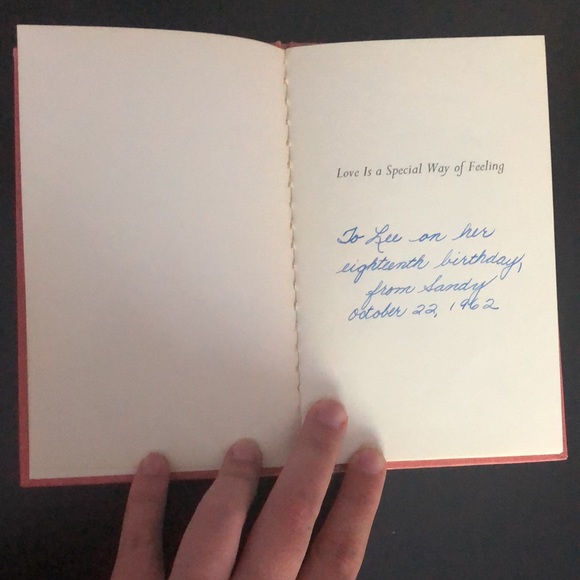 Love Is a Special Way of Feeling
To Lee on her
eighteenth birthday,
from Sandy
October 22, 1962